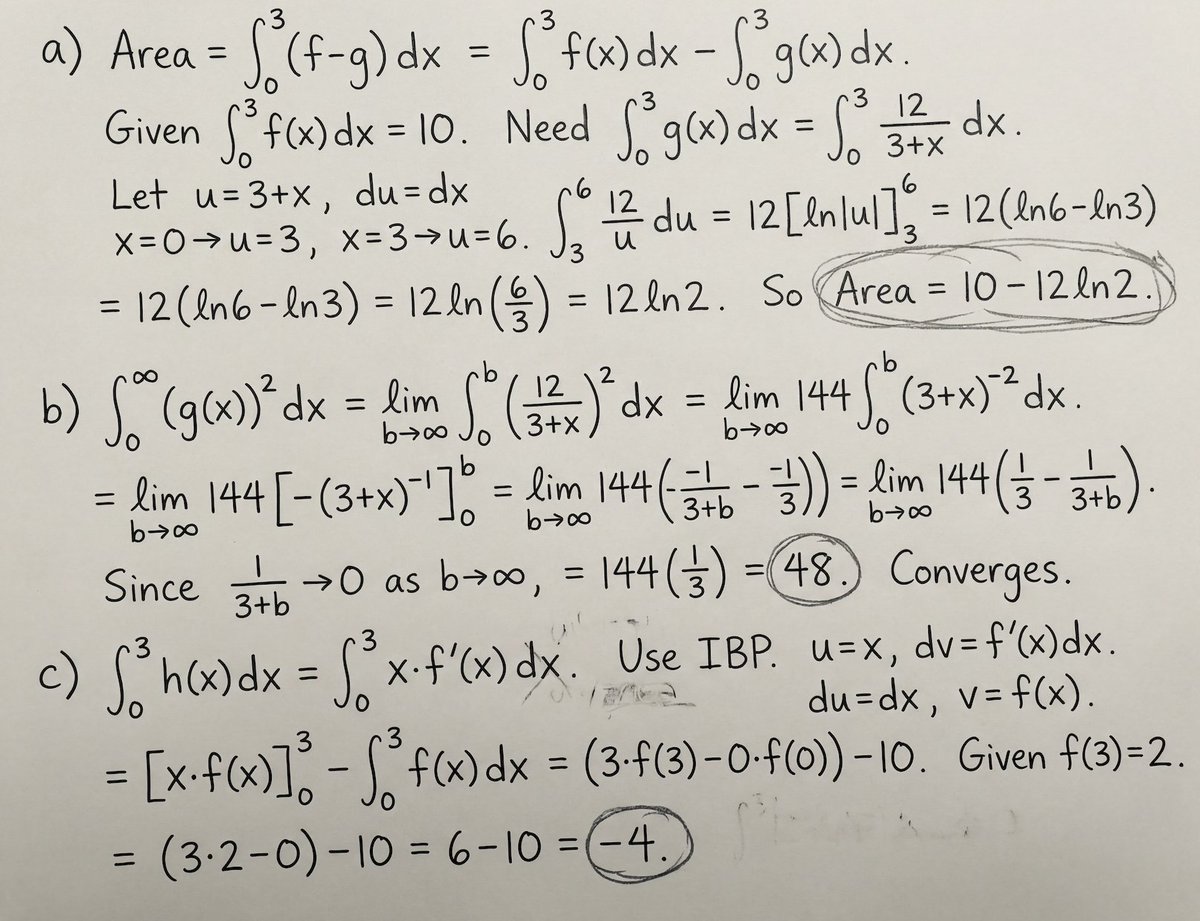 a) Area = ∫₀³(f-g) dx = ∫₀³ f(x) dx - ∫₀³ g(x) dx.
Given ∫₀³ f(x) dx = 10. Need ∫₀³ g(x) dx = ∫₀³ 12/(3+x) dx.
Let u=3+x, du=dx
x=0→u=3, x=3→u=6. ∫₃⁶ 12/u du = 12[ln|u|]₃⁶ = 12(ln6-ln3)
= 12(ln6-ln3) = 12 ln(6/3) = 12 ln2. So Area = 10-12 ln2.
b) ∫₀^∞ (g(x))² dx = lim b→∞ ∫₀ᵇ (12/(3+x))² dx = lim b→∞ 144 ∫₀ᵇ (3+x)⁻² dx.
= lim b→∞ 144[-(3+x)⁻¹]₀ᵇ = lim b→∞ 144(-1/(3+b) - -1/3)) = lim b→∞ 144(1/3 - 1/(3+b)).
Since 1/(3+b) →0 as b→∞, = 144(1/3) = 48. Converges.
c) ∫₀³ h(x) dx = ∫₀³ x·f'(x) dx. Use IBP. u=x, dv=f'(x)dx.
du=dx, v=f(x).
= [x·f(x)]₀³ - ∫₀³ f(x) dx = (3·f(3)-0·f(0))-10. Given f(3)=2.
= (3·2-0)-10 = 6-10 = -4.